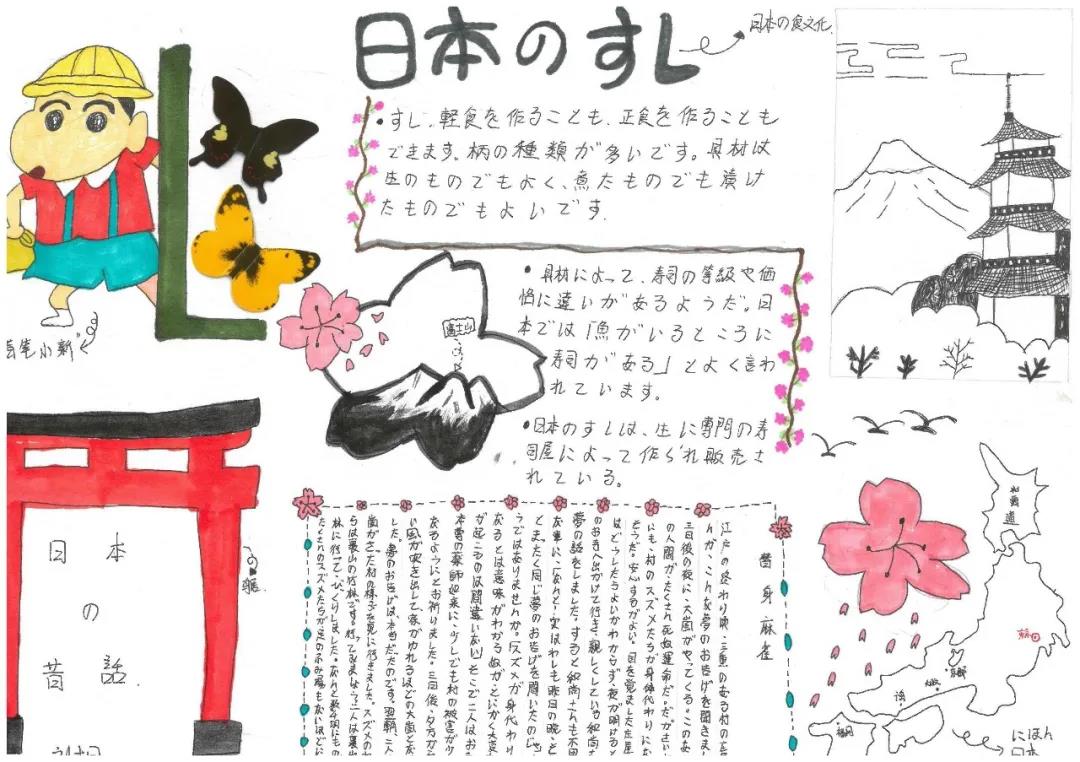 日本のすし
日本の食文化.
• すし、軽食を作ることも、正食を作ることも
できます。柄の種類が多いです。具材は
生のものでもよく、煮たものでも漬け
たものでもよいです.
• 具材によって、寿司の等級や価
格に違いがあるようだ。日
本では「魚がいるところに
寿司がある」とよく言わ
れています。
• 日本のすしは、主に専門の寿
司屋によって作られ販売さ
れている。
富士山
日本
の
昔話.
替身麻雀
江戸の終わり頃、三重のある村の
んが、こんな夢のお告げを聞きま
三日後の夜に、大嵐がやってくる。このあ
の人間がたくさん死ぬ運命だ。だがさい
にも、村のスズメたちが身代わりにな
そうだ。安心するがよい。目を覚ました庄屋
はどうしたらよいかわからず、夜が明けると
のお寺へ出かけて行き、親しくしている和尚
夢の話をしました。すると和尚さんも不思
な事に、「なんと、実はわしも昨日の晩、
とまったく同じ夢のお告げを聞いたのじ
うではありませんか。「スズメが身代わり
なるとは意味がわかるぬが、とにかく大変
が起こるのは間違いない」そこで二人はお
本尊の薬師如来に、少しでも村の被害が
なるようにとお祈りました。三日後、夕方か
い風が吹き出して、家がゆれるほどの大嵐とな
した。夢のお告げは、本当だったのです。翌朝、二人
嵐がさった村の様子を見に行きました。スズメの
らは裏山の竹林です。行ってみましょう」二人は裏山
林に行って、びっくりしました。なんと数
北海道
東京
京都
大阪
福岡
にほん
日本